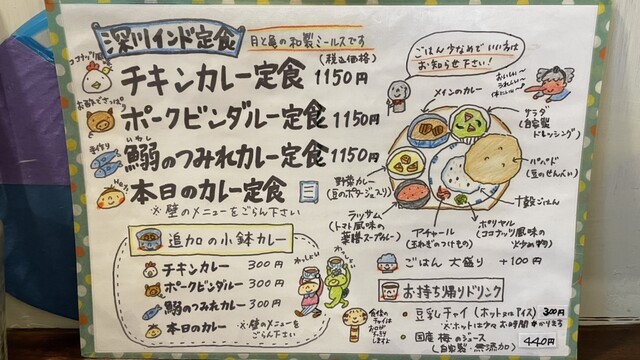 深川インド定食
月と亀の和製ミールスです
(税込価格)
ココナッツ風味
チキンカレー定食 1150円
お酢でさっぱり
ポークビンダルー定食 1150円
手作り
いわし
鰯のつみれカレー定食 1150円
本日のカレー定食
※壁のメニューをごらん下さい
追加の小鉢カレー
チキンカレー 300円
ポークビンダルー 300円
鰯のつみれカレー 300円
本日のカレー
※壁のメニューをごらん下さい
わっしょい
わっしょい
ごはん少なめでいい方は
お知らせ下さい!
おいしい〜
うれしい〜
メインのカレー
サラダ
(自家製
ドレッシング)
パパド
(豆のせんべい)
野菜カレー
(豆のポタージュ入り)
十穀ごはん
ラッサム
(トマト風味の
薬膳スープカレー)
アチャール
(玉ねぎのつけもの)
ポリヤル
(ココナッツ風味の
炒め物)
ごはん 大盛り +100円
お持ち帰りドリンク
食後の
チャイは
・豆乳チャイ (ホット又はアイス) 300円
※ホットは少々お時間かかります
・国産 梅のジュース
(自家製・無添加) 440円